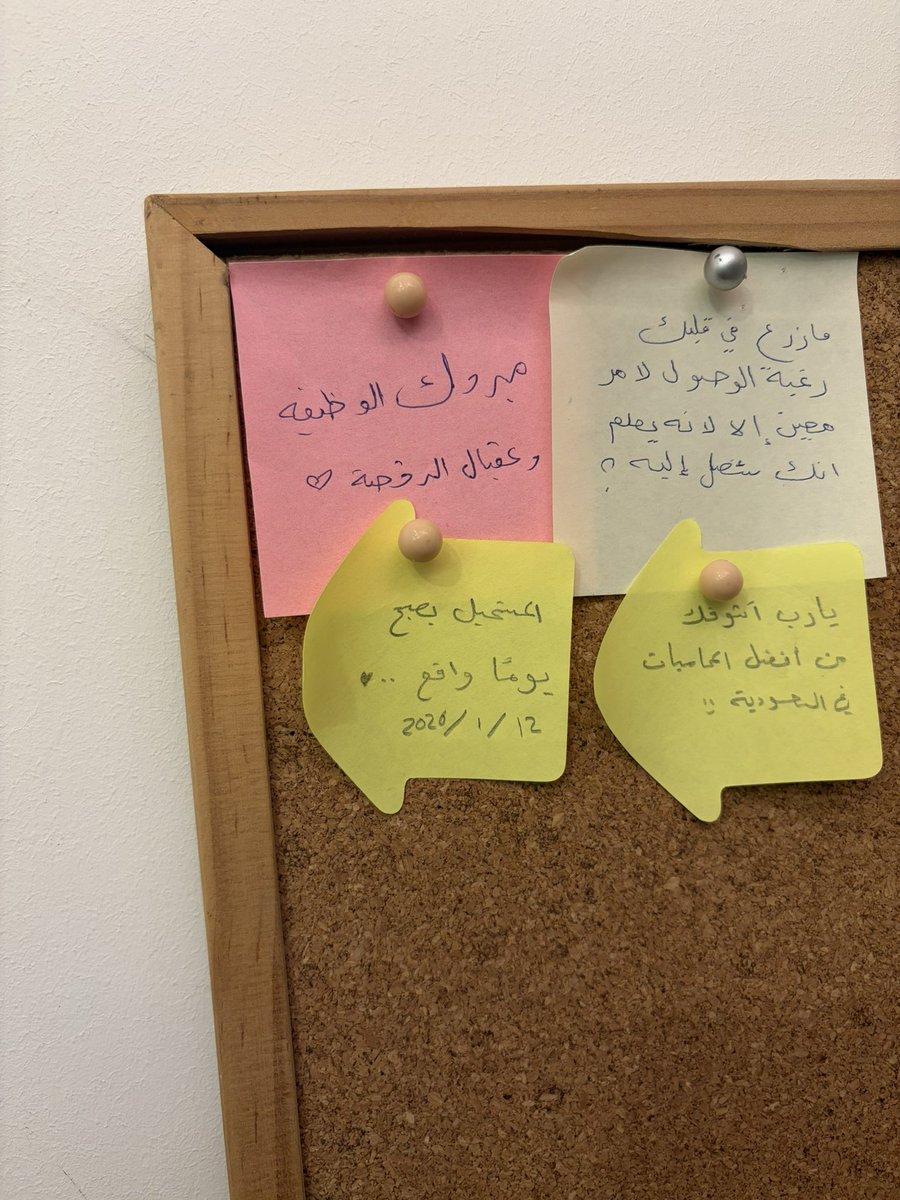 مبروك الوظيفه
وعقبال الترقية ♡
مازرع في قلبك
رغبة الوصول لامر
معين إلا لانه يعلم
انك ستصل إليه
المستحيل يصبح
يومًا واقع .. ♥
2026/1/12
يارب أشوفك
من أفضل المحاسبات
في السعودية !!